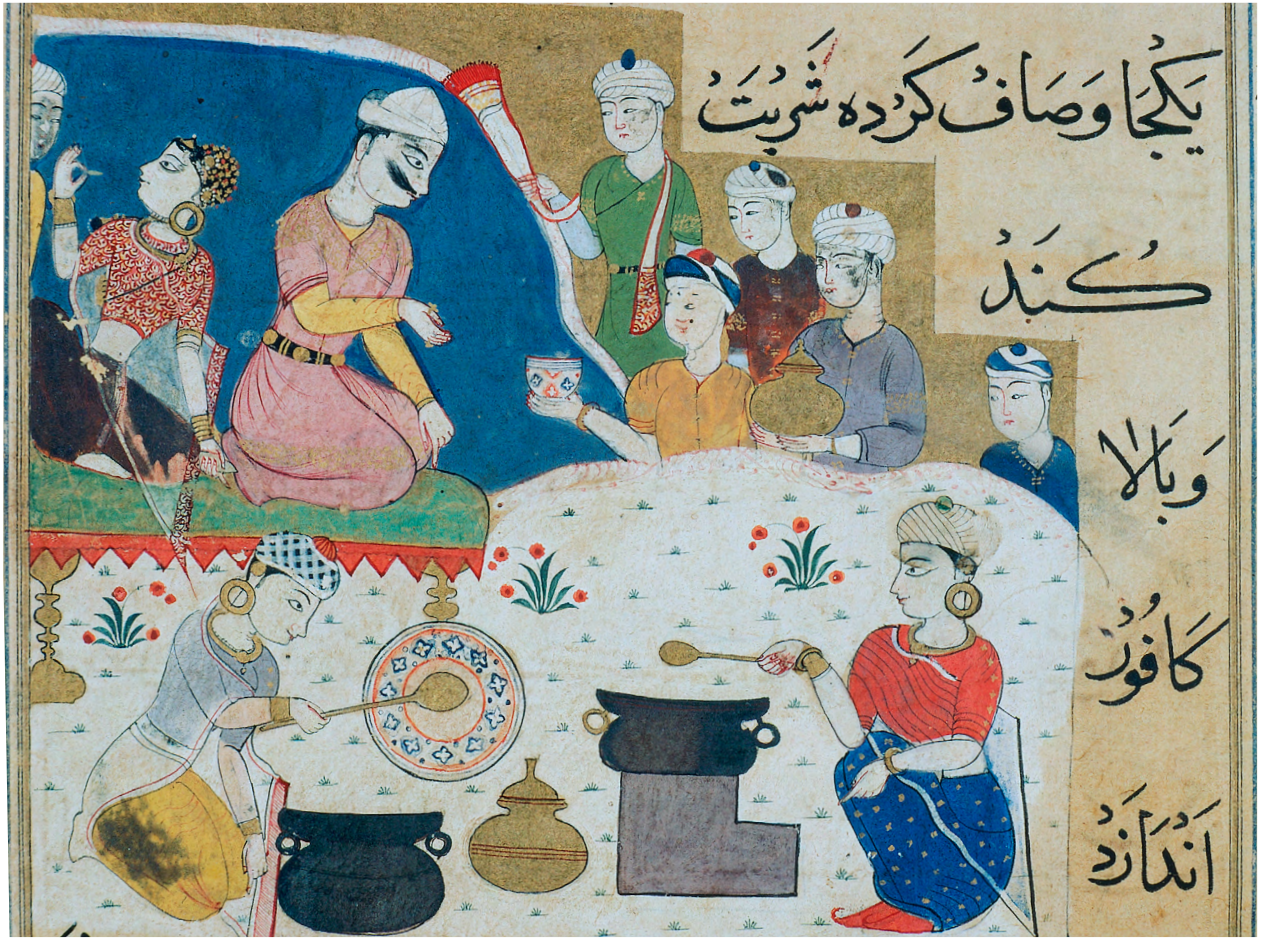 یکجا وَصَافْ کَرْدَه شَرْبَتْ
کُنَنَدْ
وَبَالا
کَافُورْ
اَنْدَازَدْ